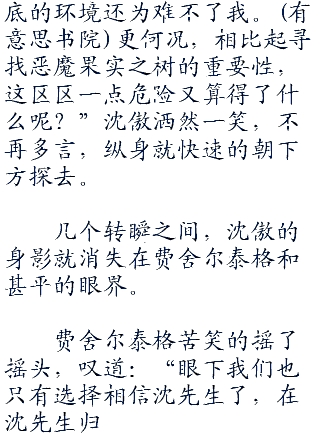 底的环境还为难不了我。(有
意思书院)更何况，相比起寻
找恶魔果实之树的重要性，
这区区一点危险又算得了什
么呢？”沈傲洒然一笑，不
再多言，纵身就快速的朝下
方探去。
几个转瞬之间，沈傲的
身影就消失在费舍尔泰格和
甚平的眼界。
费舍尔泰格苦笑的摇了
摇头，叹道：“眼下我们也
只有选择相信沈先生了，在
沈先生归